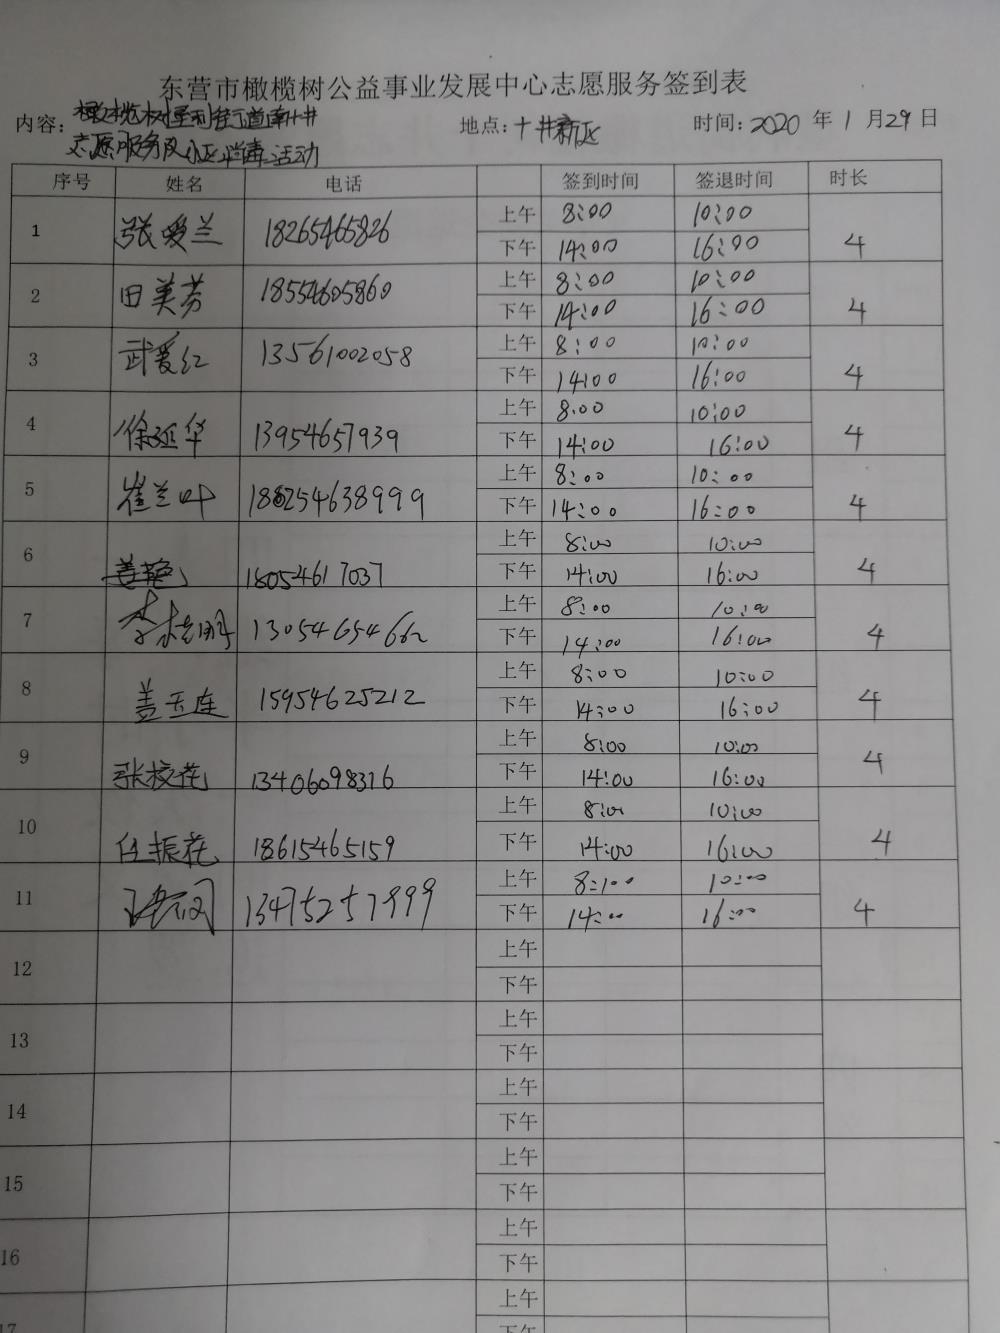 东营市橄榄树公益事业发展中心志愿服务签到表
内容：橄榄树垦利街道南十井
志愿服务队小区消毒活动
地点：十井新区
时间：2020年1月29日
序号 姓名 电话 签到时间 签退时间 时长
1 张爱兰 18265465826 上午 8:00 10:00 4
下午 14:00 16:00
2 田美芬 18554605860 上午 8:00 10:00 4
下午 14:00 16:00
3 武爱红 13561002058 上午 8:00 10:00 4
下午 14:00 16:00
4 徐延华 13954657939 上午 8:00 10:00 4
下午 14:00 16:00
5 崔兰叶 上午 8:00 10:00 4
下午 14:00 16:00
6 姜艳 18054617037 上午 8:00 10:00 4
下午 14:00 16:00
7 李桂明 13054654662 上午 8:00 10:00 4
下午 14:00 16:00
8 盖玉连 15954625212 上午 8:00 10:00 4
下午 14:00 16:00
9 张校花 13406098316 上午 8:00 10:00 4
下午 14:00 16:00
10 任振花 18615465159 上午 8:00 10:00 4
下午 14:00 16:00
11 13475257999 上午 8:00 10:00 4
下午 14:00 16:00
12 上午
下午
13 上午
下午
14 上午
下午
15 上午
下午
16 上午
下午
17 上午
下午